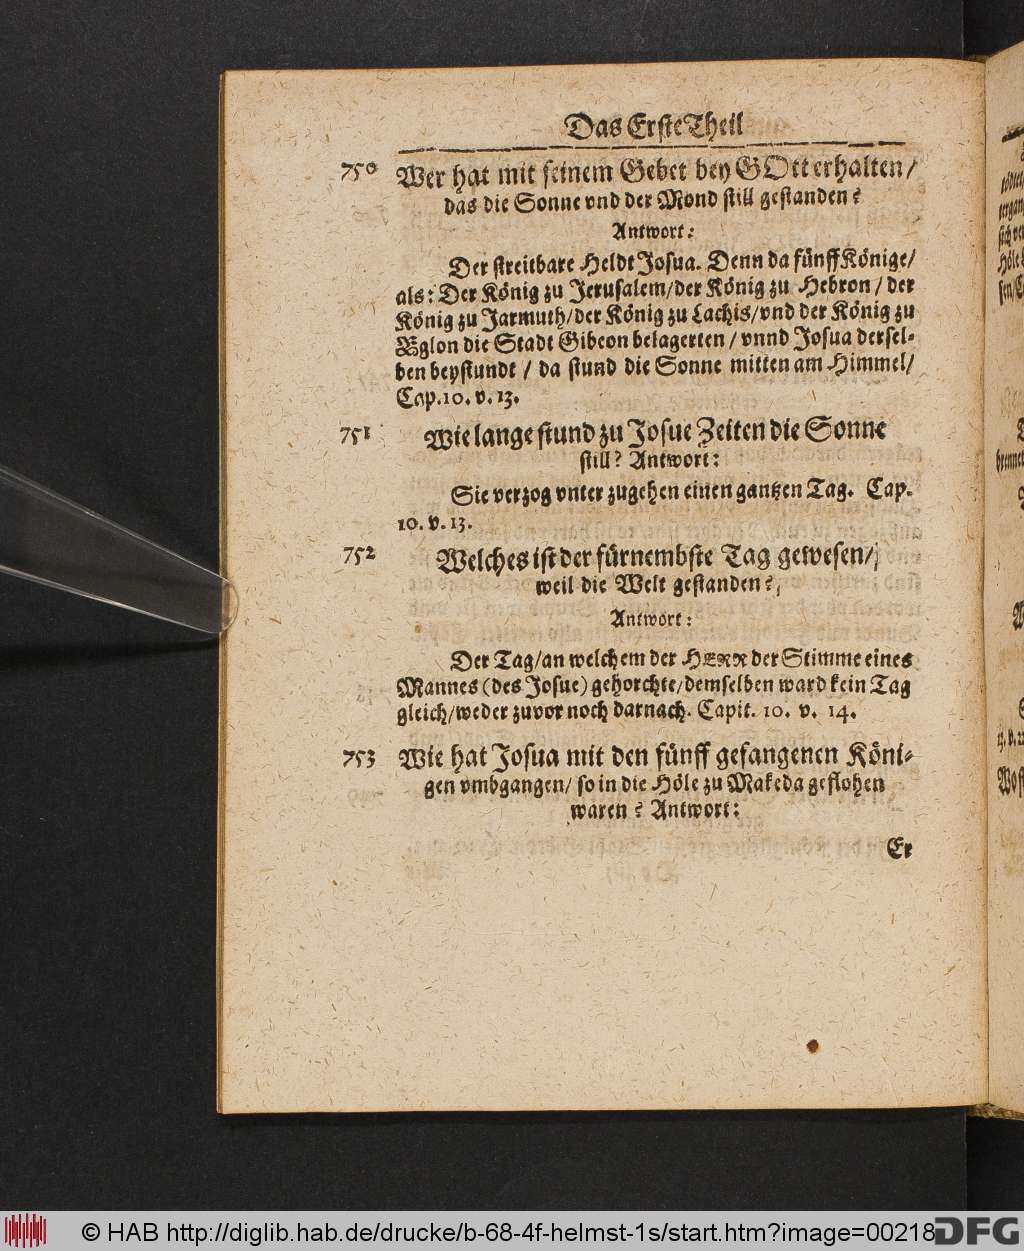 Das Erste Theil
750 Wer hat mit seinem Gebet bey GOtt erhalten/
das die Sonne vnd der Mond still gestanden?
Antwort:
Der streitbare Heldt Josua. Denn da fünff Könige/
als: Der König zu Jerusalem/der König zu Hebron/ der
König zu Jarmuth/der König zu Lachis/vnd der König zu
Eglon die Stadt Gibeon belagerten/ vnnd Josua dersel-
ben beystundt/ da stund die Sonne mitten am Himmel/
Cap.10. v. 13.
751 Wie lange stund zu Josue Zeiten die Sonne
still? Antwort:
Sie verzog vnter zugehen einen gantzen Tag. Cap.
10. v. 13.
752 Welches ist der fürnembste Tag gewesen/
weil die Welt gestanden?
Antwort:
Der Tag/an welchem der HERR der Stimme eines
Mannes (des Josue) gehorchte/demselben ward kein Tag
gleich/weder zuvor noch darnach. Capit. 10. v. 14.
753 Wie hat Josua mit den fünff gefangenen Köni-
gen vmbgangen/ so in die Höle zu Makeda geflohen
waren? Antwort:
Er
© HAB http://diglib.hab.de/drucke/b-68-4f-helmst-1s/start.htm?image=00218
DFG